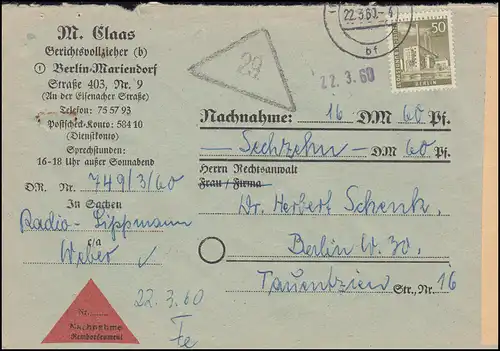 M. Claas
Gerichtsvollzieher (b)
① Berlin-Mariendorf
Straße 403, Nr. 9
(An der Eisenacher Straße)
Telefon: 75 57 93
Postscheck-Konto: 584 10
(Dienstkonto)
Sprechstunden:
16-18 Uhr außer Sonnabend
DR. Nr. 749/3/60
In Sachen
Radio-Lippmann
c/a
Weber
22.3.60
Fe
Nr.
Nachnahme
Remboursement
29
22.3.60
bf
22.3.60
50
BERLIN
Nachnahme: 16 DM 60 Pf.
Sechzehn DM 60 Pf.
Herrn Rechtsanwalt
Frau / Firma
Dr. Herbert Schenk,
Berlin W. 30,
Tauentzien Str., Nr. 16